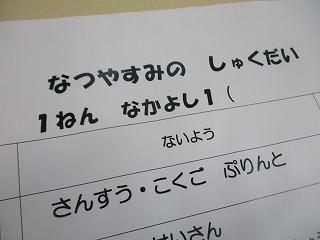 なつやすみの しゅくだい
1ねん なかよし1(
ないよう
さんすう・こくご ぷりんと
けいさん